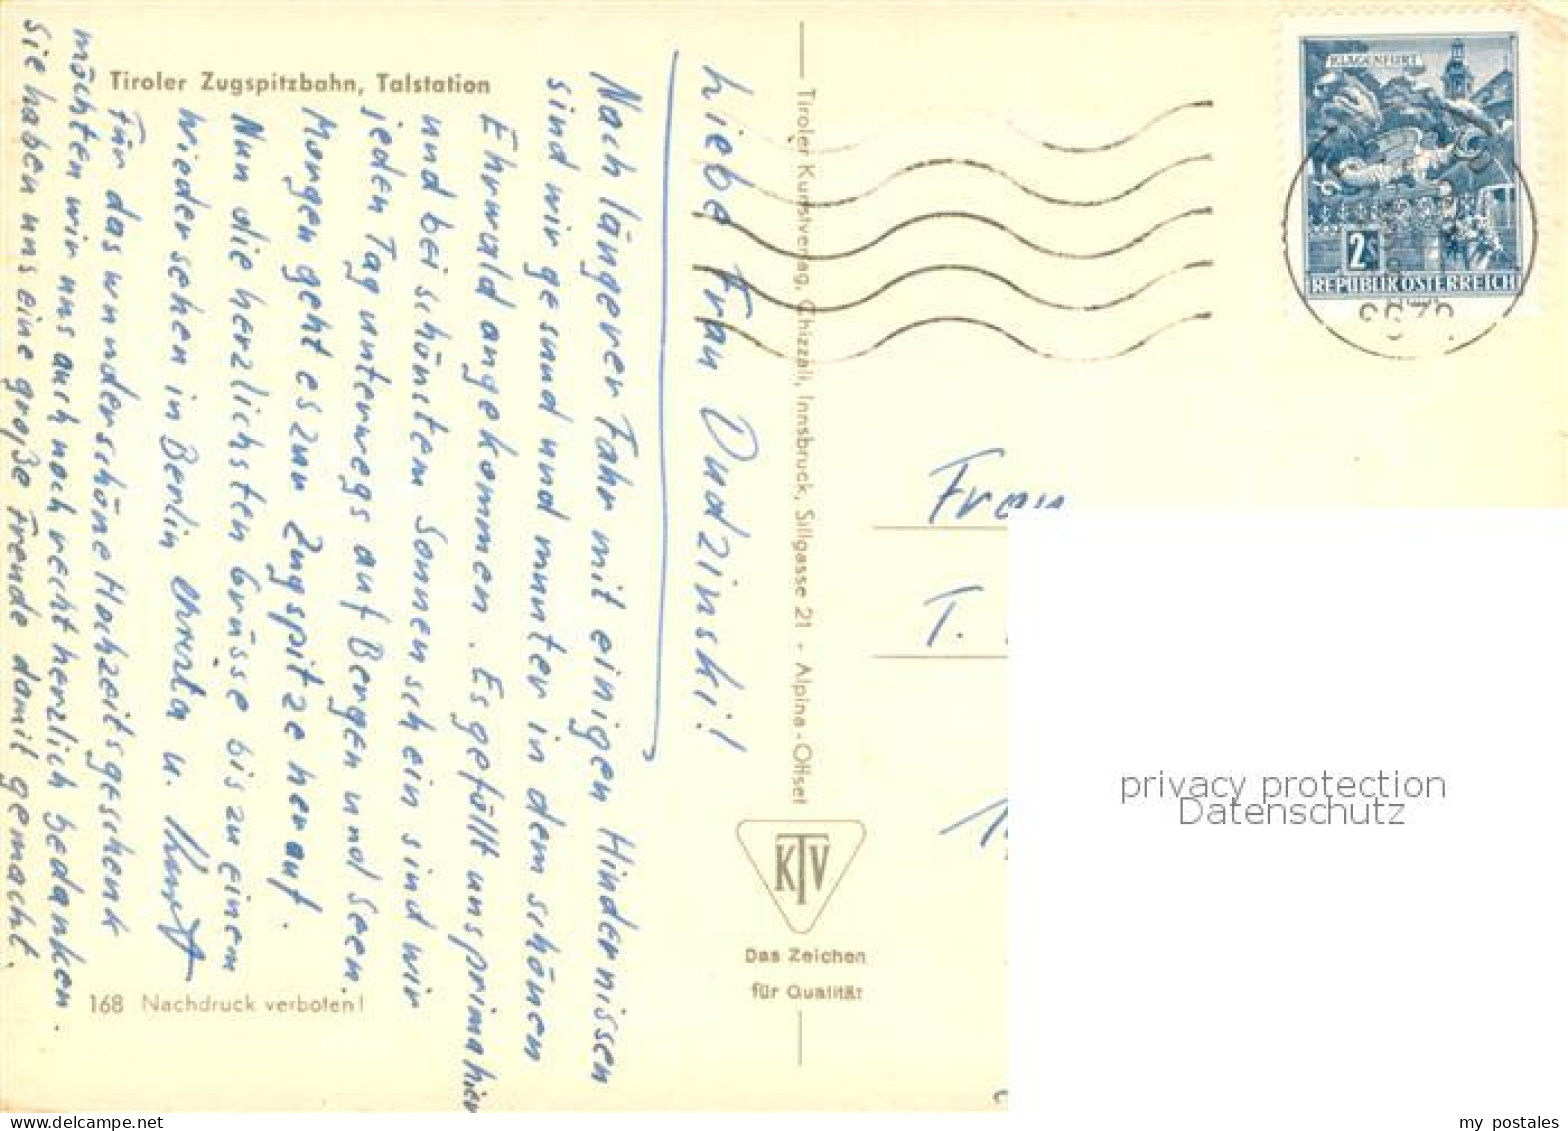 Tiroler Zugspitzbahn, Talstation
Liebe Frau Dudzinski!
Nach längerer Fahr mit einigen Hindernissen
sind wir gesund und munter in dem schönen
Ehrwald angekommen. Es gefällt uns prima hier
und bei schönstem Sonnenschein sind wir
jeden Tag unterwegs auf Bergen und Seen.
Morgen geht es zur Zugspitze herauf.
Nun die herzlichsten Grüsse bis zu einem
Wiedersehen in Berlin Christa u. Kurt
Für das wunderschöne Hochzeitsgeschenk
möchten wir uns auch noch recht herzlich bedanken.
Sie haben uns eine große Freude damit gemacht.
168 Nachdruck verboten!
Tiroler Kunstverlag, Chizzali, Innsbruck, Sillgasse 21 - Alpina-Offset
KTV
Das Zeichen
für Qualität
KLAGENFURT
2 S
REPUBLIK ÖSTERREICH
Frau
T.
privacy protection
Datenschutz
www.delcampe.net
my_postales